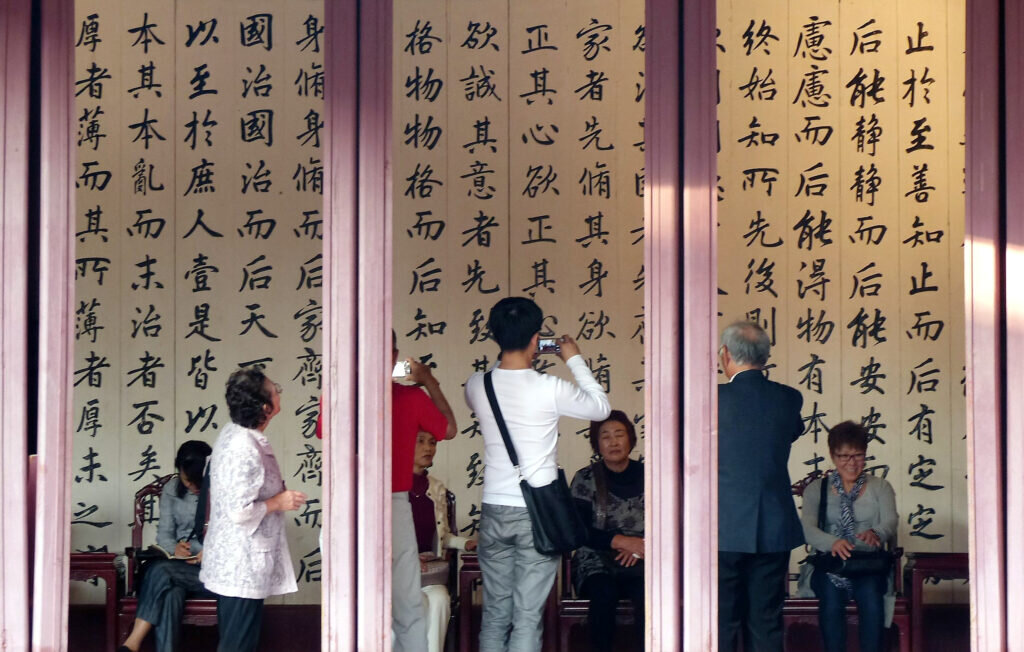 止於至善知止而后有定定
后能靜靜而后能安安而
慮慮而后能得物有本
終始知所先後則
家者先脩其身欲脩
正其心欲正其
欲誠其意者先致其
格物物格而后知
身脩身脩而后家齊家齊而
國治國治而后天
以至於庶人壹是皆以
本其本亂而末治者否矣
厚者薄而其所薄者厚未之